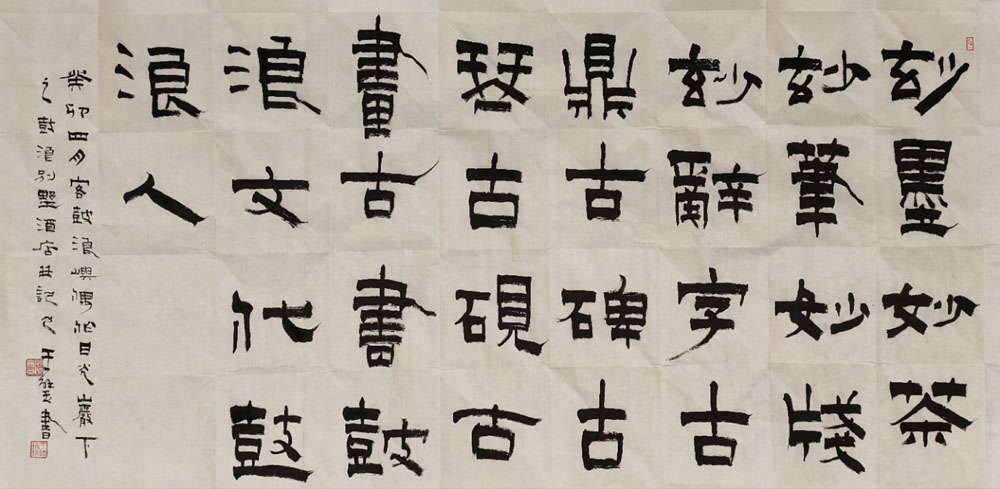 玅墨妙茶
玅筆妙牋
玅辭字古
鼎古碑古
琴古硯古
畫古書鼓
浪文代鼓
浪人
癸卯四月客鼓浪嶼偶作日光巖下
之鼓浪別墅酒店并記之 書